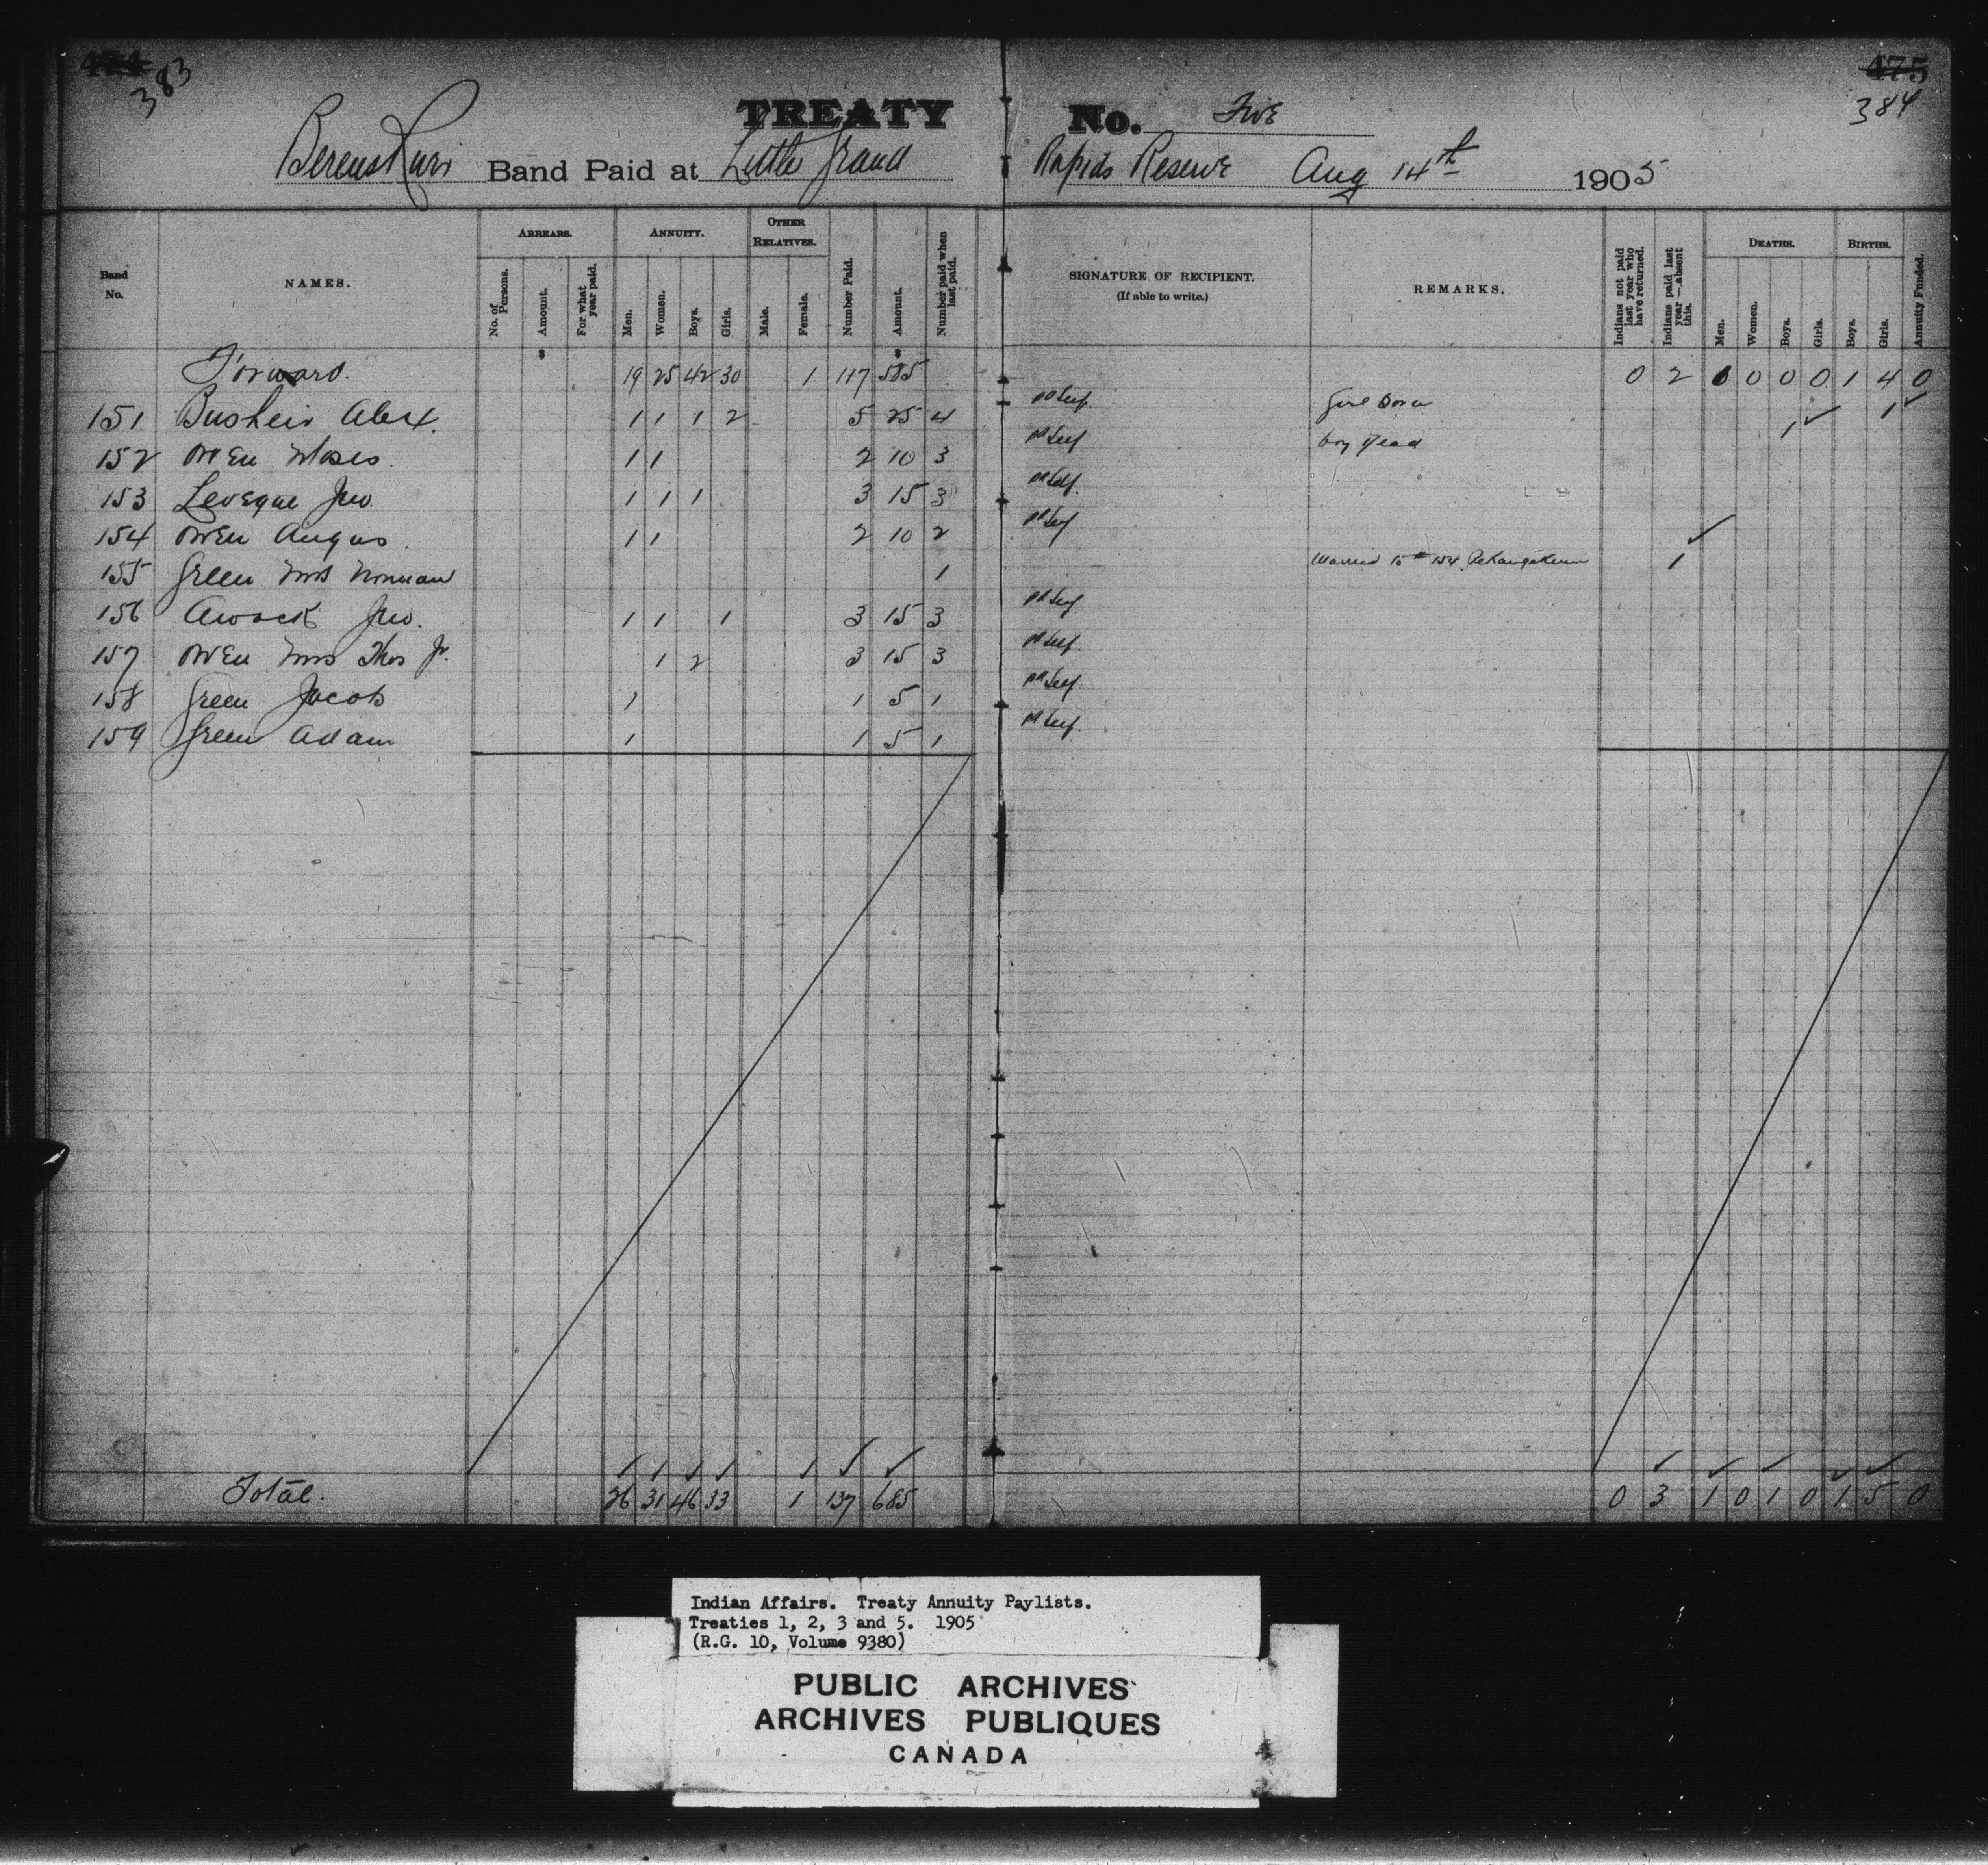 383
475
384
TREATY No. Five
Berens River Band Paid at Little Grand Rapids Reserve Aug 14th 1905
Band No. NAMES. ARREARS. No. of Persons. Amount. For what year paid. ANNUITY. Men. Women. Boys. Girls. OTHER RELATIVES. Male. Female. Number Paid. Amount. Number paid when last paid. SIGNATURE OF RECIPIENT. (If able to write.) REMARKS. Indians not paid last year who have returned. Indians paid last year—absent this. DEATHS. Men. Women. Boys. Girls. BIRTHS. Boys. Girls. Annuity Funded.
Forward. 19 25 42 30 1 117 585 0 2 1 0 0 0 1 4 0
151 Alex. 1 1 1 2 5 25 4 pd Self Girl Born 1
152 Owen Moses 1 1 2 10 3 pd Self boy dead 1
153 Leveque Jno. 1 1 1 3 15 3 pd Self
154 Owen Angus 1 1 2 10 2 pd Self
155 Green Mrs Norman 1 Married to # 154 Pekangekum 1
156 Awock Jno. 1 1 1 3 15 3 pd Self
157 Owen Mrs Thos Jr. 1 2 3 15 3 pd Self
158 Green Jacob 1 1 5 1 pd Self
159 Green Adam 1 1 5 1 pd Self
Total. 26 31 46 33 1 137 685 0 3 1 0 1 0 1 5 0
Indian Affairs. Treaty Annuity Paylists.
Treaties 1, 2, 3 and 5. 1905
(R.G. 10, Volume 9380)
PUBLIC ARCHIVES
ARCHIVES PUBLIQUES
CANADA